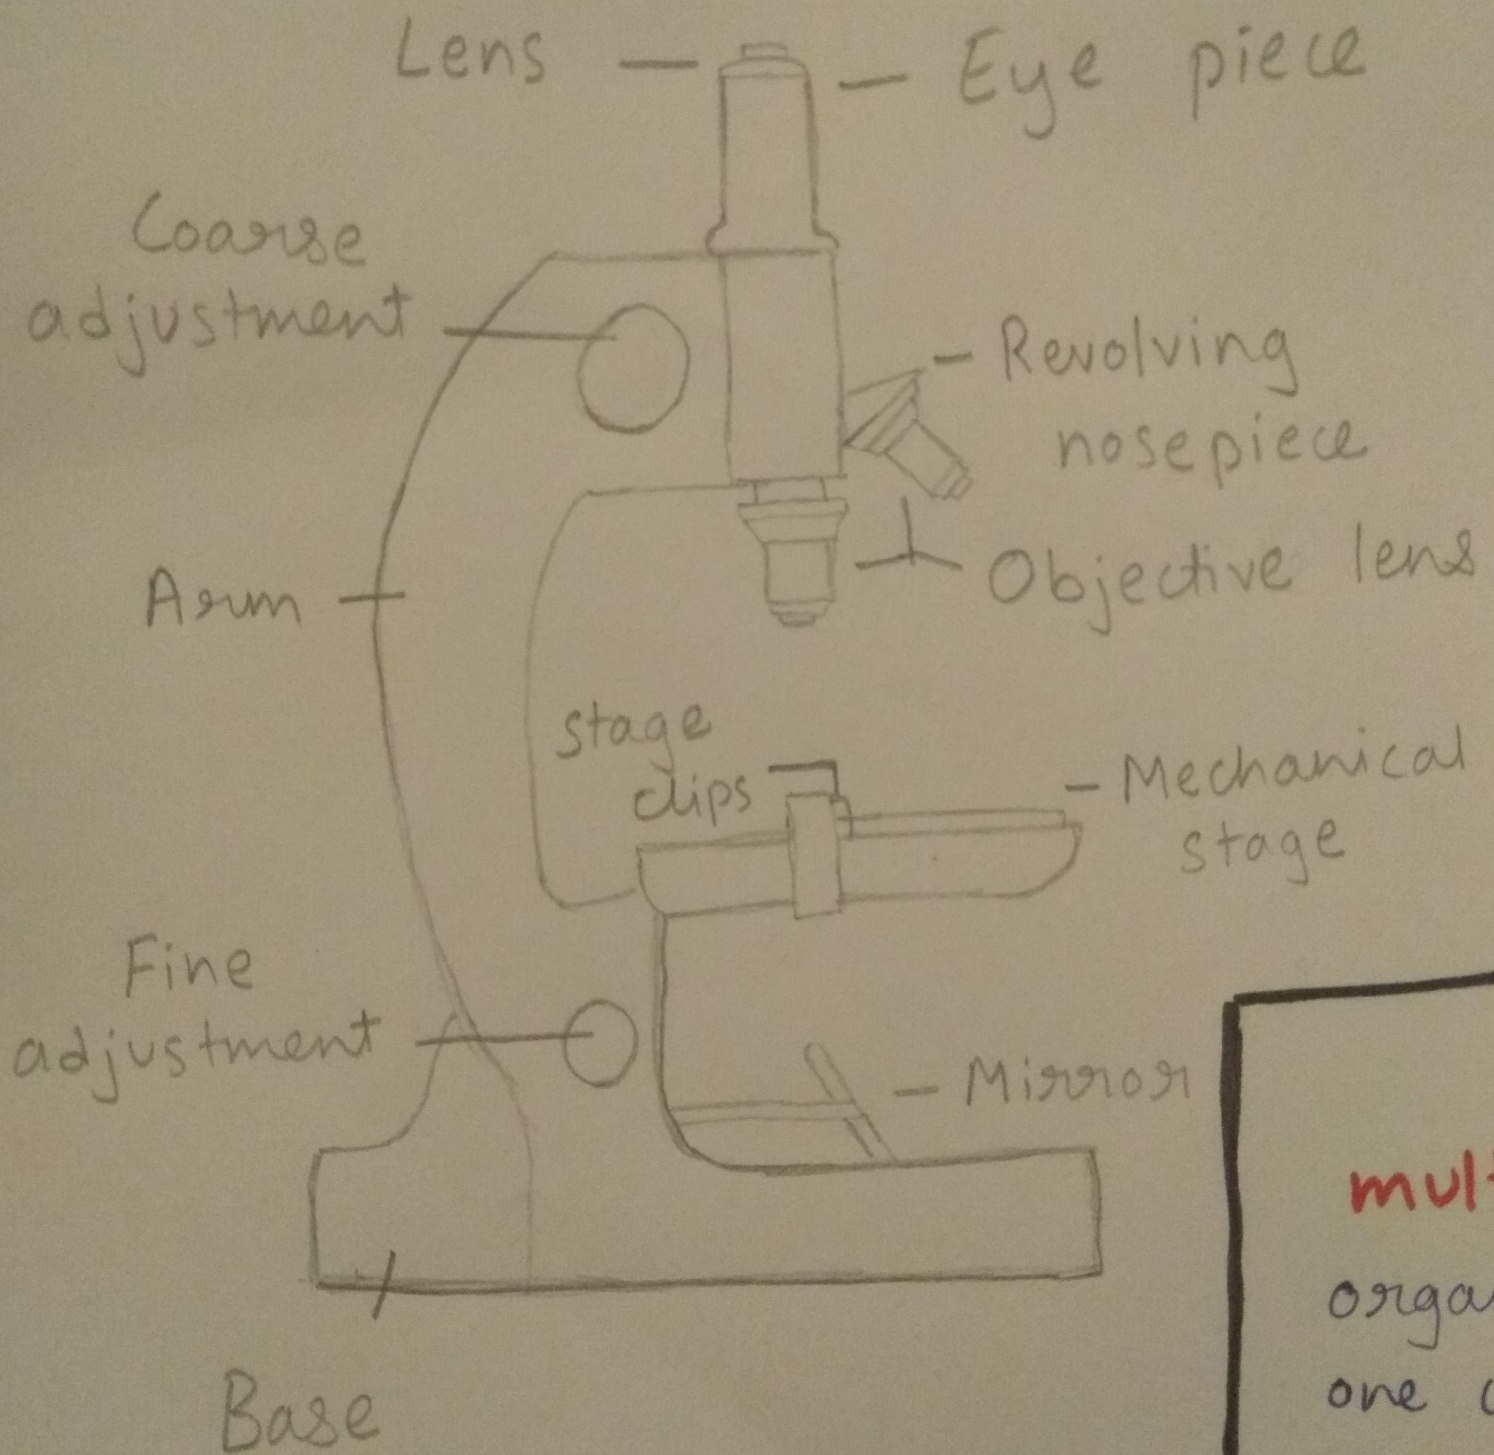 Lens
Eye piece
Coarse
adjustment
Revolving
nosepiece
Objective lens
Arm
stage
clips
Mechanical
stage
Fine
adjustment
Mirror
Base
mul
orga
one